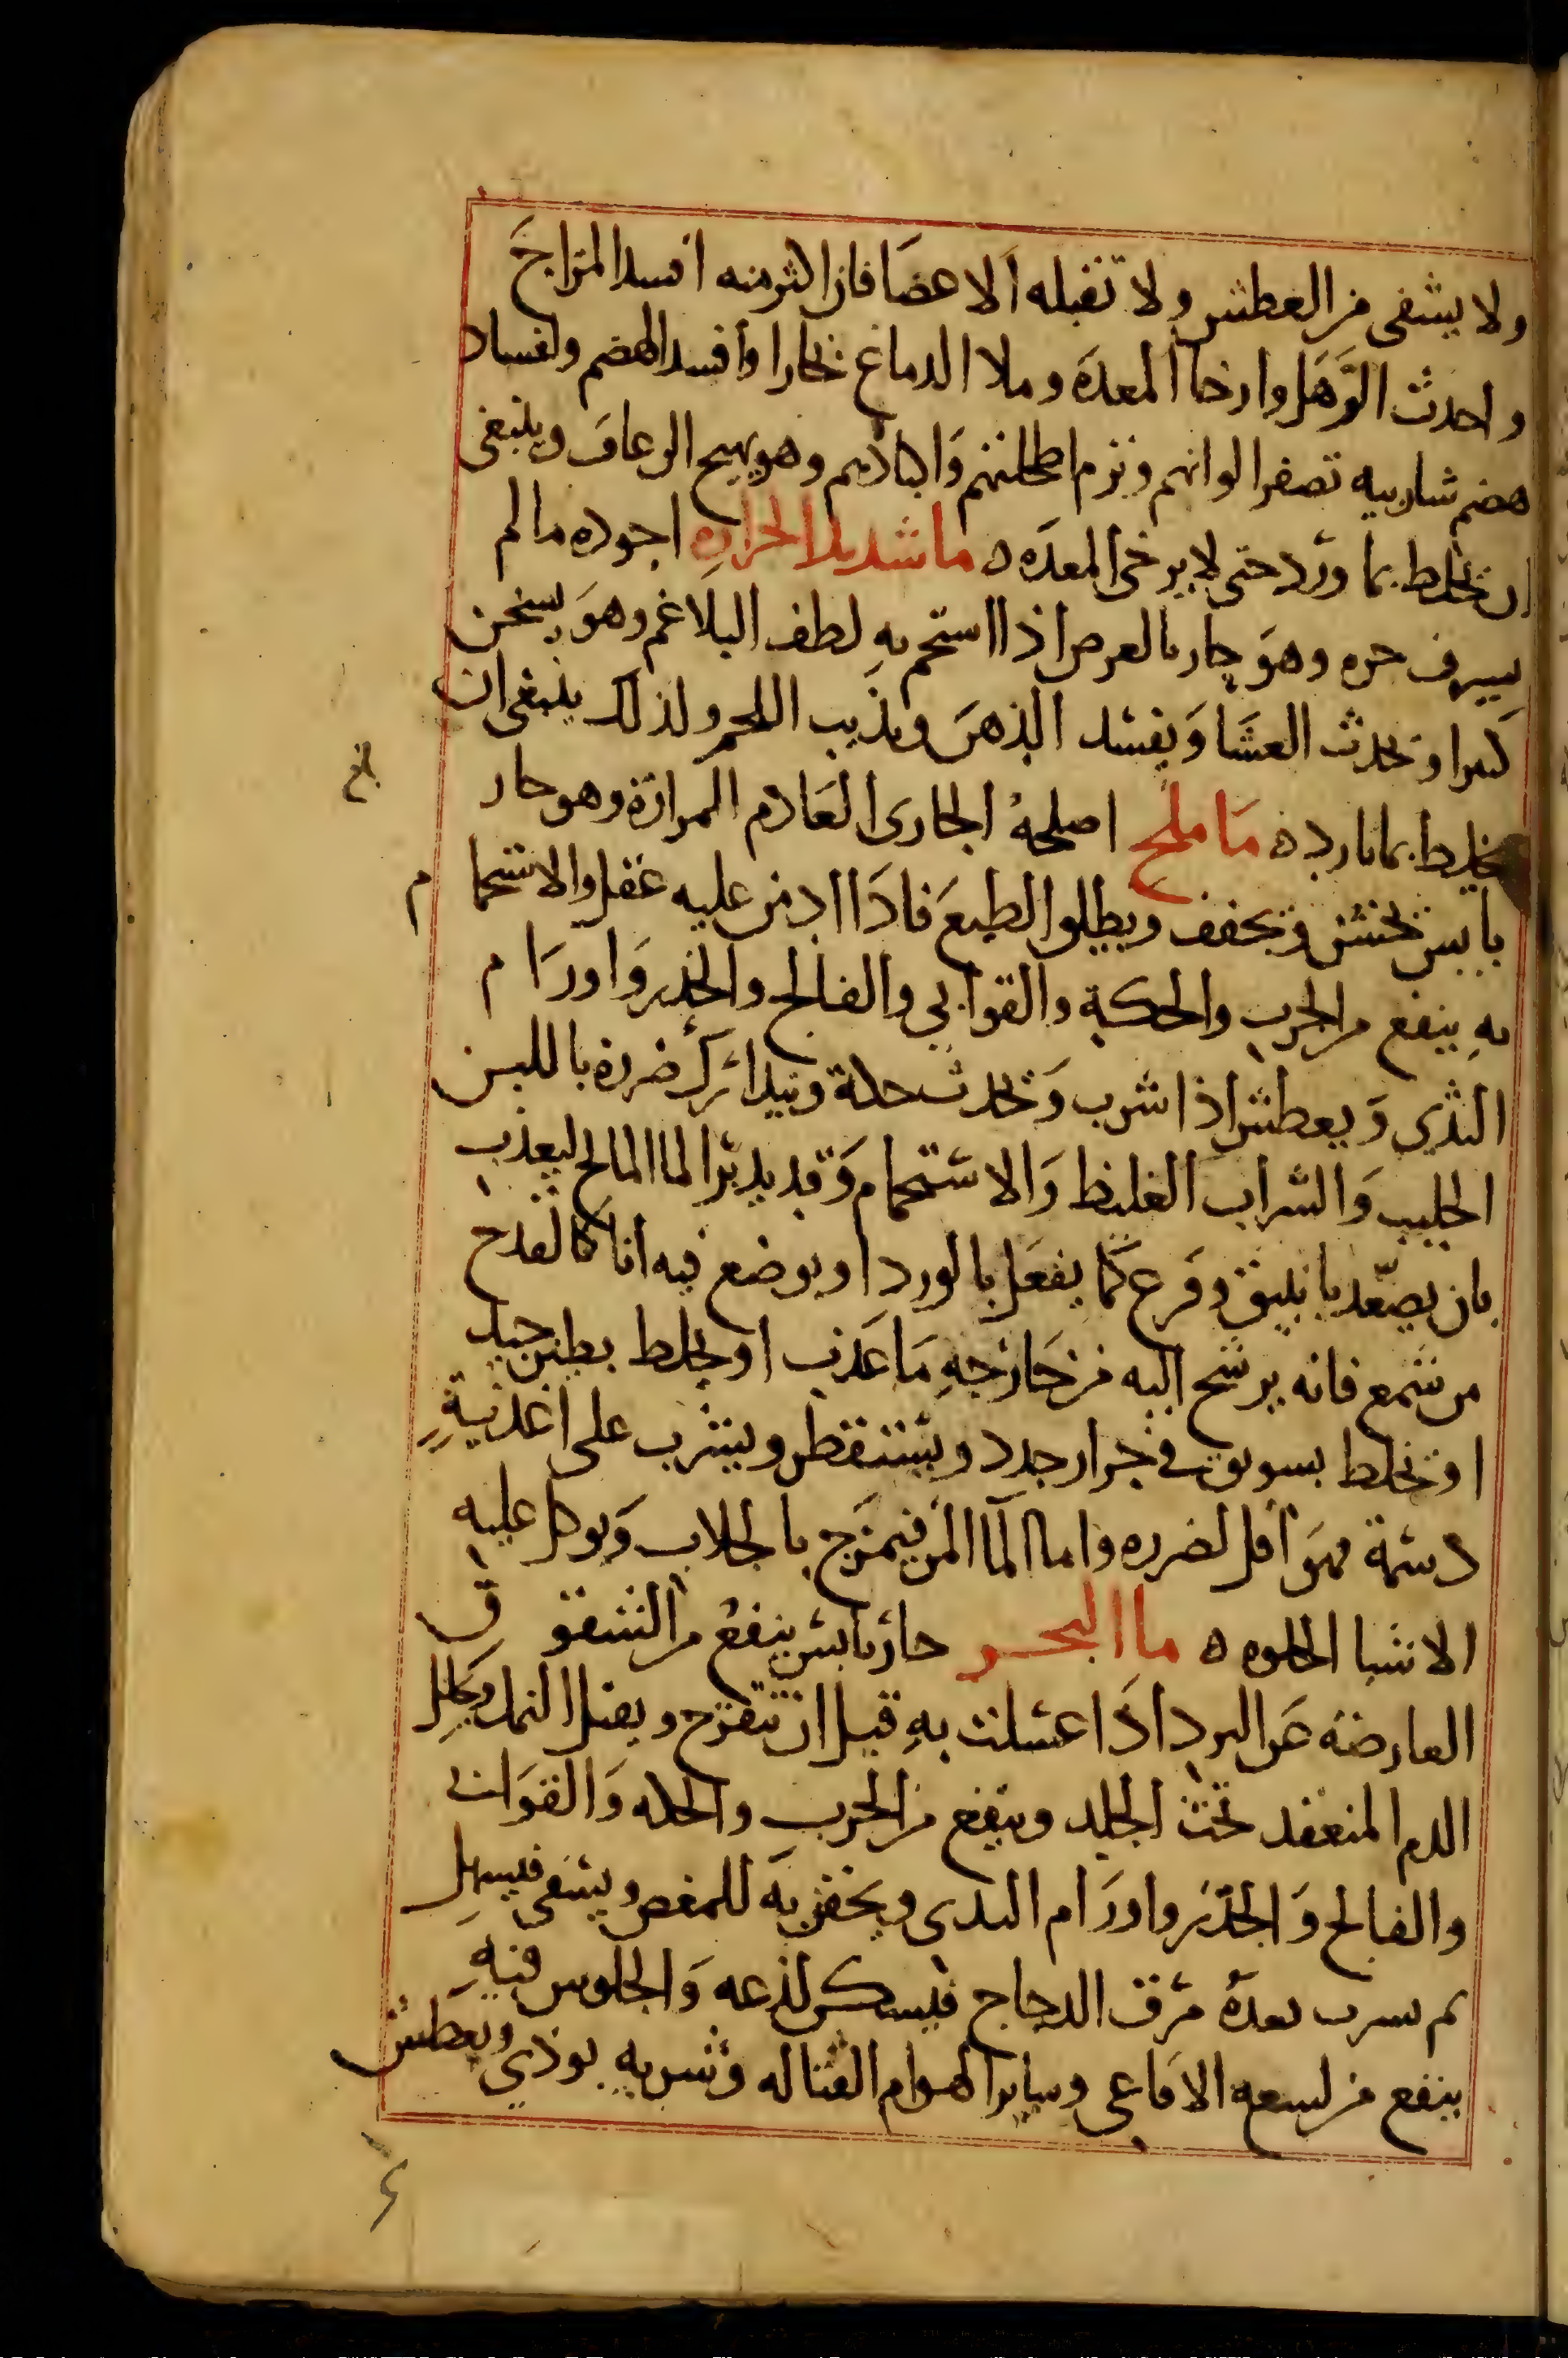 ولا يشفى من العطش ولا تقبله الاعضا فان اكثر منه افسد المزاج
واحدث الترهل وارخا المعدة وملا الدماغ بخارا وأفسد الهضم ولفساد
هضم شاربيه تصفر الوانهم وترم اطحلتهم واكبادهم وهو يهيج الرعاف وينبغى
ان يخلط بما ورد حتى لا يرخى المعده ه ما شديد الحراره اجوده ما لم
يسرف حره وهو حار بالعرض اذا استحم به لطف البلاغم وهو يسخن
كثيرا ويحدث الغشا ويفسد الذهن ويذيب اللحم ولذلك ينبغى ان
يخلط بما بارد ه ما ملح اصلحه الجارى العادم المرارة وهو حار
يابس يخشن ويجفف ويطلق الطبع فاذا ادمن عليه عقل والاستحمام
به ينفع من الجرب والحكة والقوابي والفالج والخدر واورام
الثدي ويعطش اذا شرب ويحدث حكة ضرره باللبن
الحليب والشراب الغليظ والاستحمام وقد يدبر الما المالح ليعذب
بان يصعّد بانبيق وقرع كما يفعل بالورد او يوضع فيه انا كالقدح
من شمع فانه يرشح اليه من خارجه ما عذب او يخلط بطين جيد
او يخلط بسويق في جرار جدد ويستقطر ويشرب على اغذية
دسمة فهو اقل لضرره واما الما المر فيمزج بالجلاب ويوكل عليه
الاشيا الحلوه ه ما البحر حار يابس ينفع من الشقوق
العارضه عن البرد اذا غسلت به قبل ان تتقرح ويقتل القمل ويحلل
الدم المنعقد تحت الجلد وينفع من الجرب والحكه والقوابى
والفالج والخدر واورام الثدى ويحقن به للمغص ويسقى فيسهل
ثم يشرب بعده مرق الدجاج فيسكن لذعه والجلوس فيه
ينفع من لسعه الافاعي وساير الهوام القتاله وشربه يوذي ويعطش